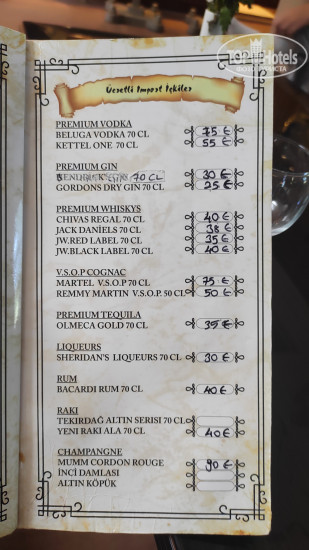 TopHotels
Ücretli Import İçkiler
PREMIUM VODKA
BELUGA VODKA 70 CL 75 €
KETTEL ONE 70 CL 55 €
PREMIUM GIN
70 CL 30 €
GORDONS DRY GIN 70 CL 25 €
PREMIUM WHISKYS
CHIVAS REGAL 70 CL 40 €
JACK DANİELS 70 CL 38 €
JW.RED LABEL 70 CL 35 €
JW.BLACK LABEL 70 CL 40 €
V.S.O.P COGNAC
MARTEL V.S.O.P 70 CL 75 €
REMMY MARTIN V.S.O.P. 50 CL 50 €
PREMIUM TEQUILA
OLMECA GOLD 70 CL 35 €
LIQUEURS
SHERIDAN'S LIQUEURS 70 CL 30 €
RUM
BACARDI RUM 70 CL 40 €
RAKI
TEKIRDAĞ ALTIN SERISI 70 CL
YENI RAKI ALA 70 CL 40 €
CHAMPANGNE
MUMM CORDON ROUGE 90 €
İNCİ DAMLASI
ALTIN KÖPÜK